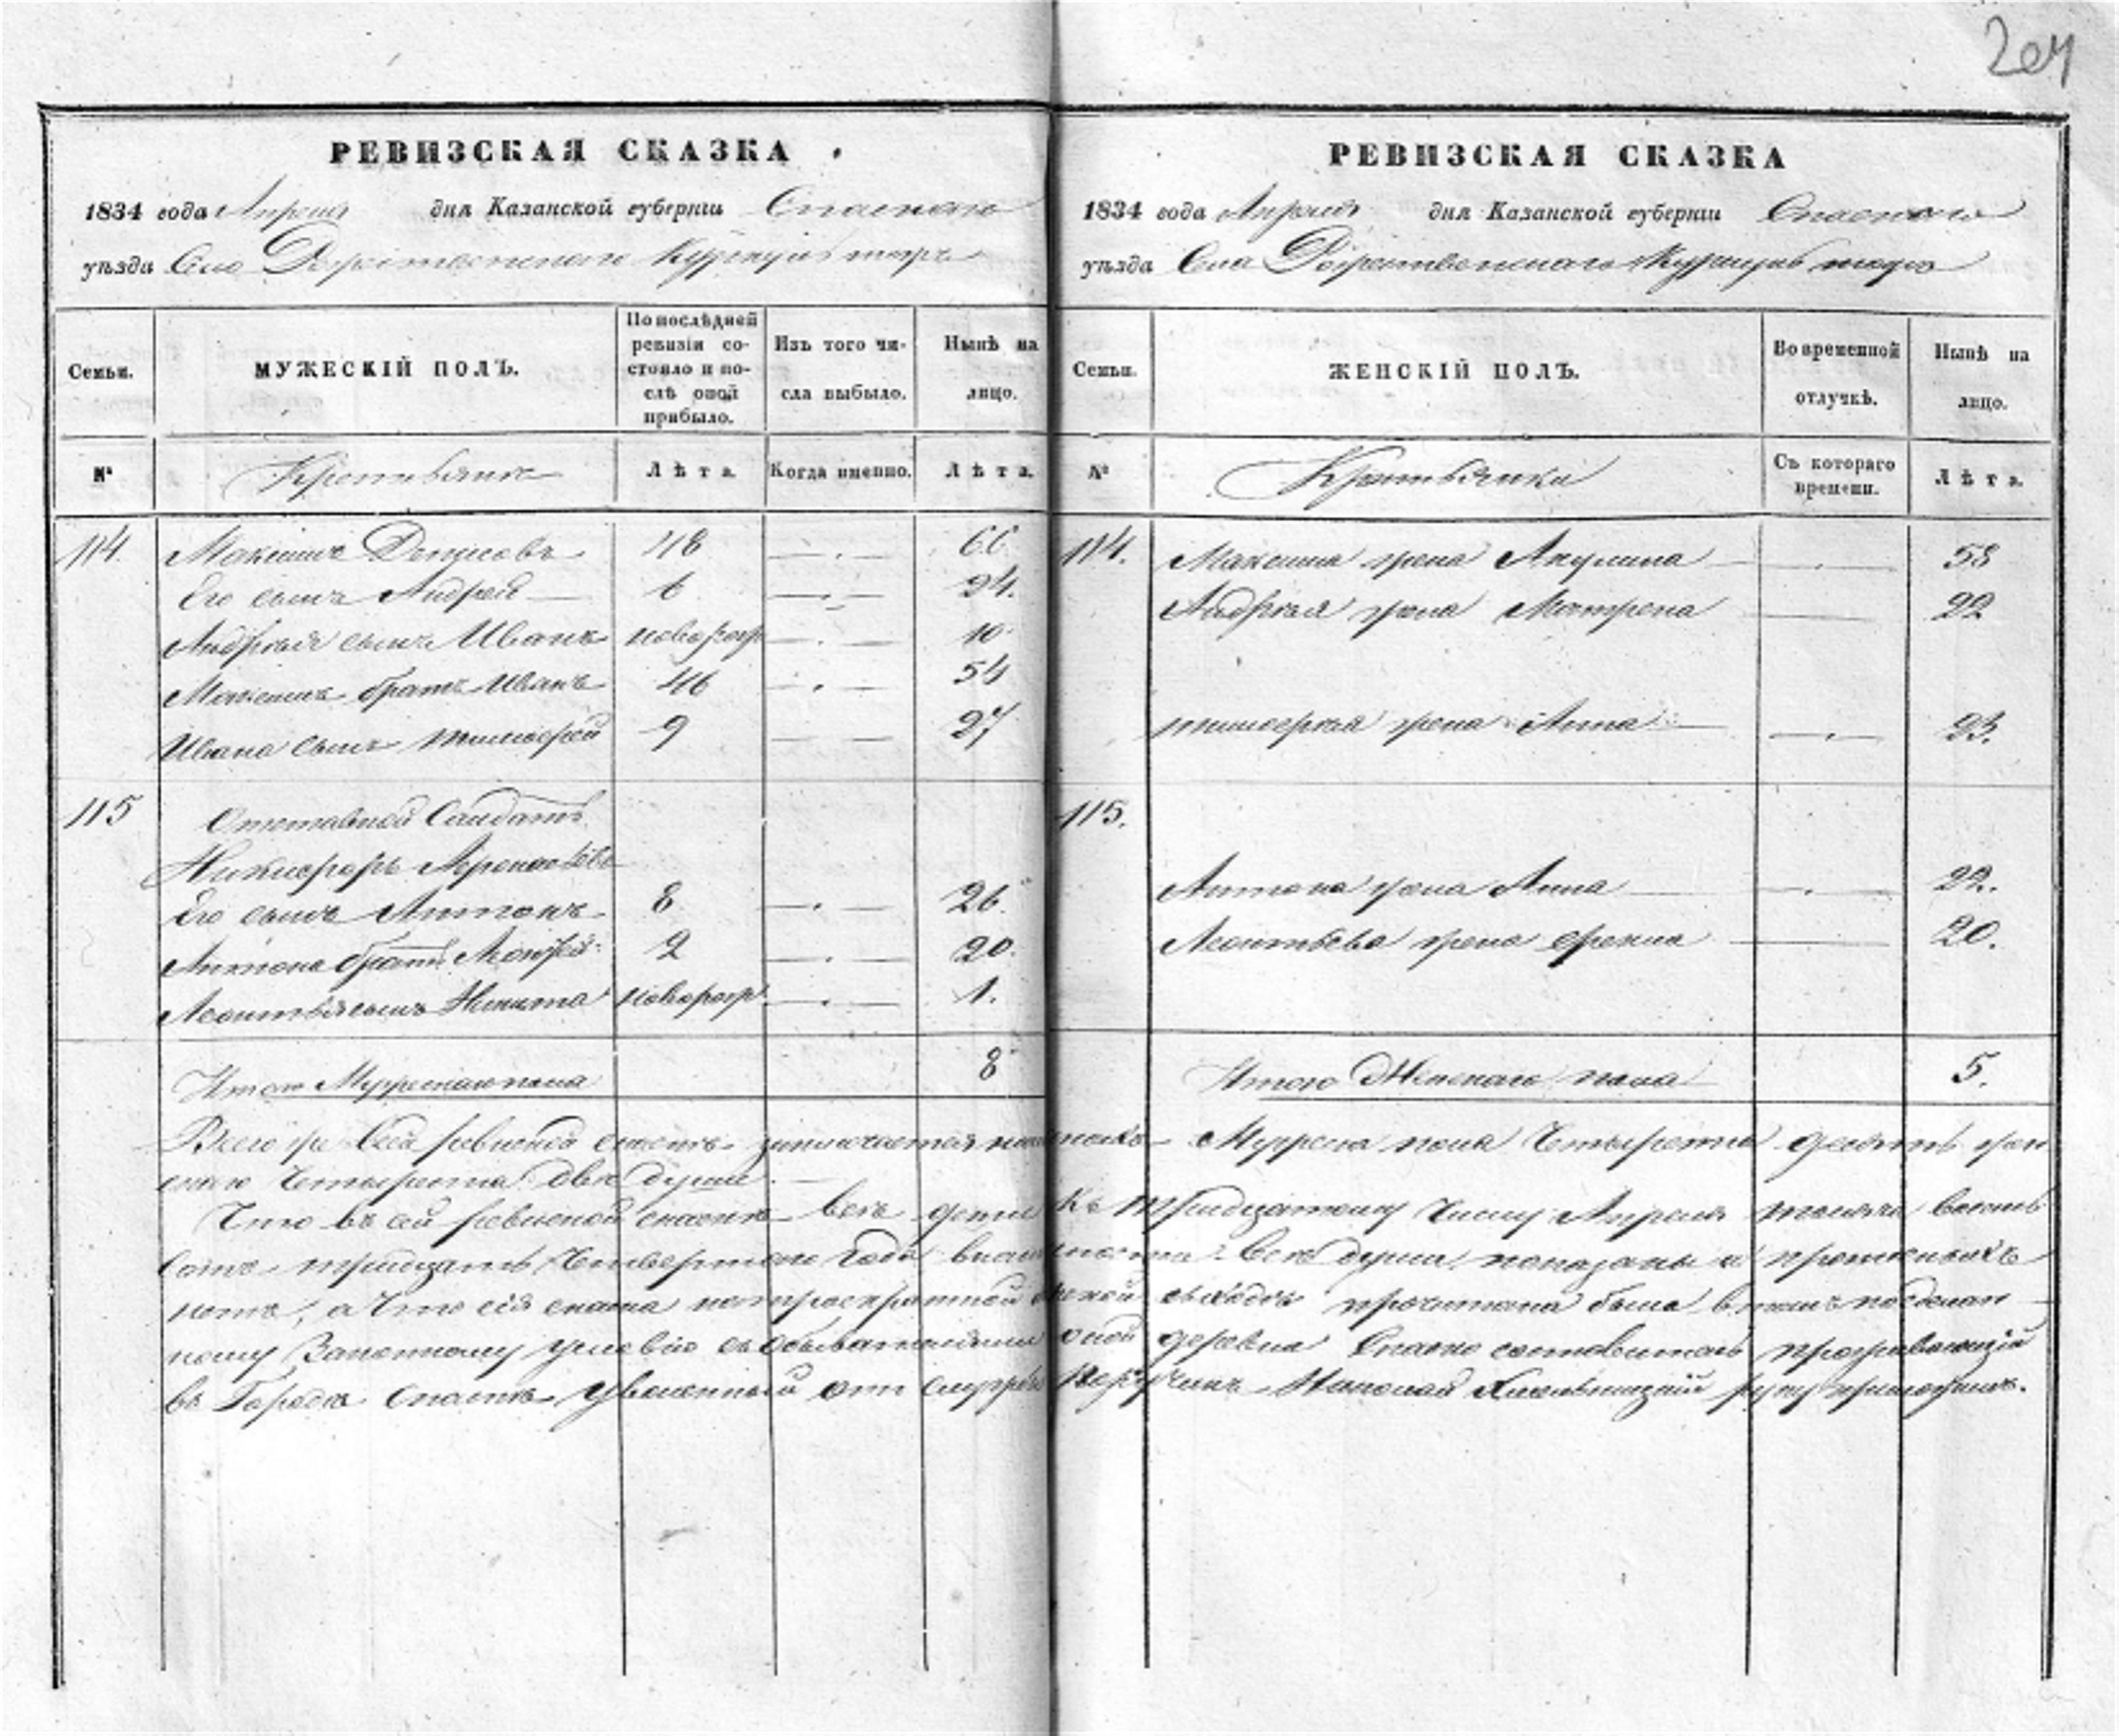 204
РЕВИЗСКАЯ СКАЗКА
1834 года Апреля дня Казанской губернiи Спаскаго
уѣзда Села Рожественскаго
Семьи.
МУЖЕСКІЙ ПОЛЪ.
По послѣдней
ревизiи со-
стояло и по-
слѣ оной
прибыло.
Изъ того чи-
сла выбыло.
Нынѣ на
лицо.
№
Крестьяне
Лѣта.
Когда именно.
Лѣта.
114. Максимъ Денисовъ 48 66
Его сынъ Андрей 6 24.
Андрея сынъ Иванъ новорож 10
Максима братъ Иванъ 46 54
Ивана сынъ Тимофей 9 27
115 Отставной Салдатъ
Никифоръ
Его сынъ Антонъ 8 26.
Антона братъ 2 20.
Леонтья сынъ Никита новорож 1.
Итого Мужескаго пола 8
РЕВИЗСКАЯ СКАЗКА
1834 года Апреля дня Казанской губернiи Спаскаго
уѣзда Села Рожественскаго
Семьи.
ЖЕНСКІЙ ПОЛЪ.
Во временной
отлучкѣ.
Нынѣ на
лицо.
№
Крестьянки
Съ котораго
времени.
Лѣта.
114. Максима жена Акулина 58
Андрея жена Матрена 22
Тимофея жена Анна 23.
115.
Антона жена Анна 22.
Леонтьева жена 20.
Итого Женскаго пола 5.
Всего же въ сей ревиской скаскѣ заключается Мужеска пола Четыреста десять жен
скаго Четыреста двѣ души.
Что въ сей ревиской скаскѣ всѣ дети къ тридцатому Числу Апреля тысяча восемь
сотъ тридцать Четвертаго Года все души показаны и
нетъ, а Что сiя скаска была
ному Законному условiю съ обывателями оной деревни Скаску составителъ проживающiй
въ Городе Спаске Уволенный отъ службы Николай руку приложилъ.